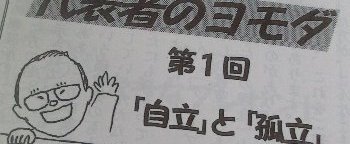 代表者のヨモダ
第1回
「自立」と「孤立」